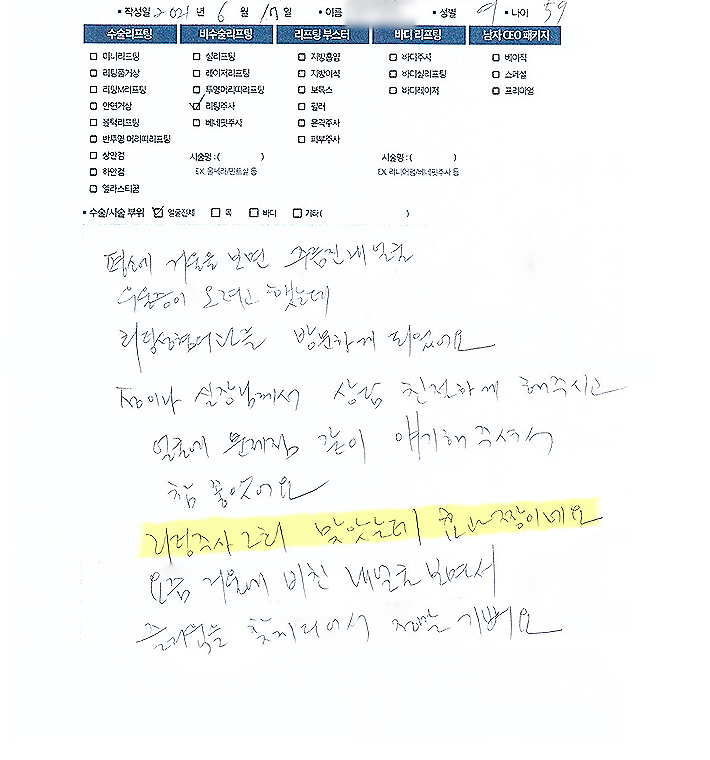 • 작성일 2021 년 6 월 17 일 • 이름 • 성별 여 • 나이 59
수술리프팅 비수술리프팅 리프팅 부스터 바디 리프팅 남자 CEO 패키지
미니리프팅 실리프팅 지방흡입 바디주사 베이직
리팅풀거상 레이저리프팅 지방이식 바디실리프팅 스페셜
리팅M리프팅 투명머리띠리프팅 보톡스 바디레이저 프리미엄
안면거상 리팅주사 필러
블랙리프팅 베네핏주사 윤곽주사
반투명 머리띠리프팅 피부주사
상안검 시술명 : ( ) 시술명 : ( )
하안검 EX. 울쎄라/민트실 등 EX. 리니어펌/베네핏주사 등
엘라스티꿈
• 수술/시술 부위 얼굴전체 목 바디 기타 ( )
평소에 거울을 보면 주름진 내 얼굴
우울증이 오려고 했는데
리팅성형외과를 방문하게 되었어요
실장님께서 상담 친절하게 해주시고
얼굴에 문제점 같이 얘기해 주셔서
참 좋았어요
리팅주사 2회 맞았는데 효과 짱이네요
요즘 거울에 비친 내얼굴 보면서
즐거움을 찾게되어서 정말 기뻐요